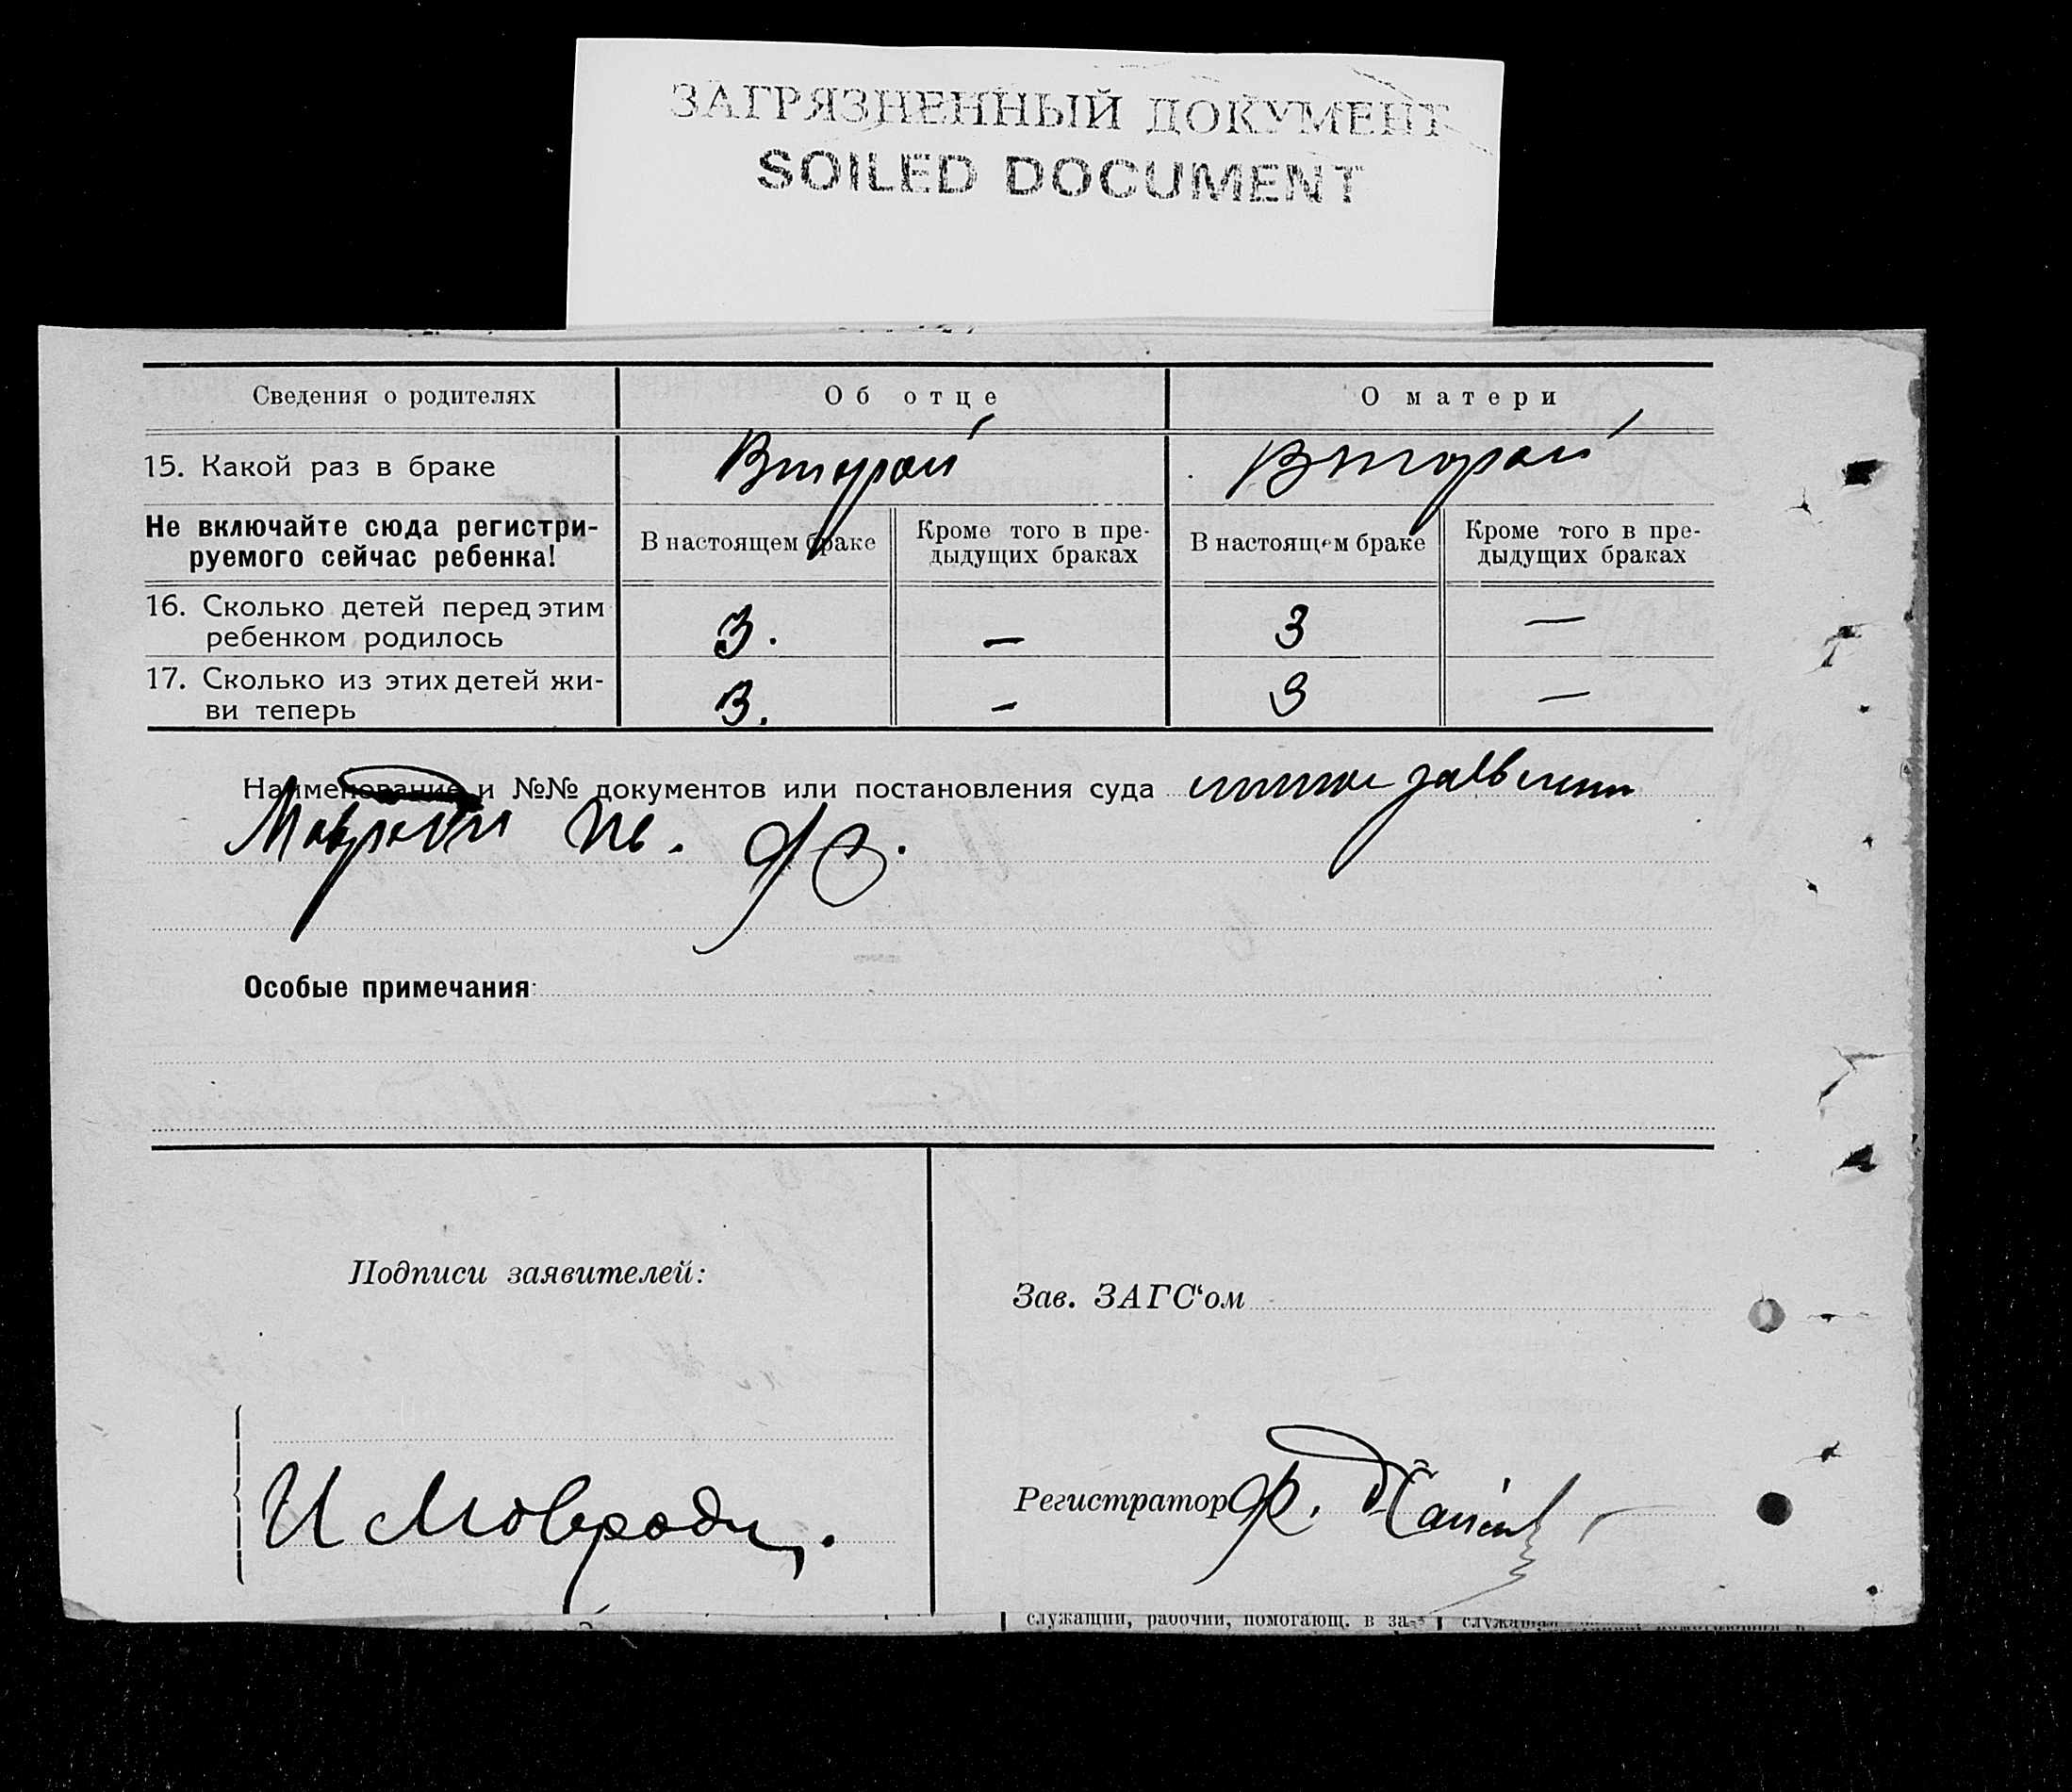 ЗАГРЯЗНЕННЫЙ ДОКУМЕНТ
SOILED DOCUMENT
Сведения о родителях Об отце О матери
15. Какой раз в браке Второй Второй
Не включайте сюда регистри-
руемого сейчас ребенка!
В настоящем браке
Кроме того в пре-
дыдущих браках
В настоящем браке
Кроме того в пре-
дыдущих браках
16. Сколько детей перед этим
ребенком родилось 3. — 3 —
17. Сколько из этих детей жи-
ви теперь 3. — 3 —
Наименование и №№ документов или постановления суда личное
Мавроди Ив.
Особые примечания:
Подписи заявителей:
Зав. ЗАГС‘ом
И Мавроди.
Регистратор
служащий, рабочий, помогающ. в за-